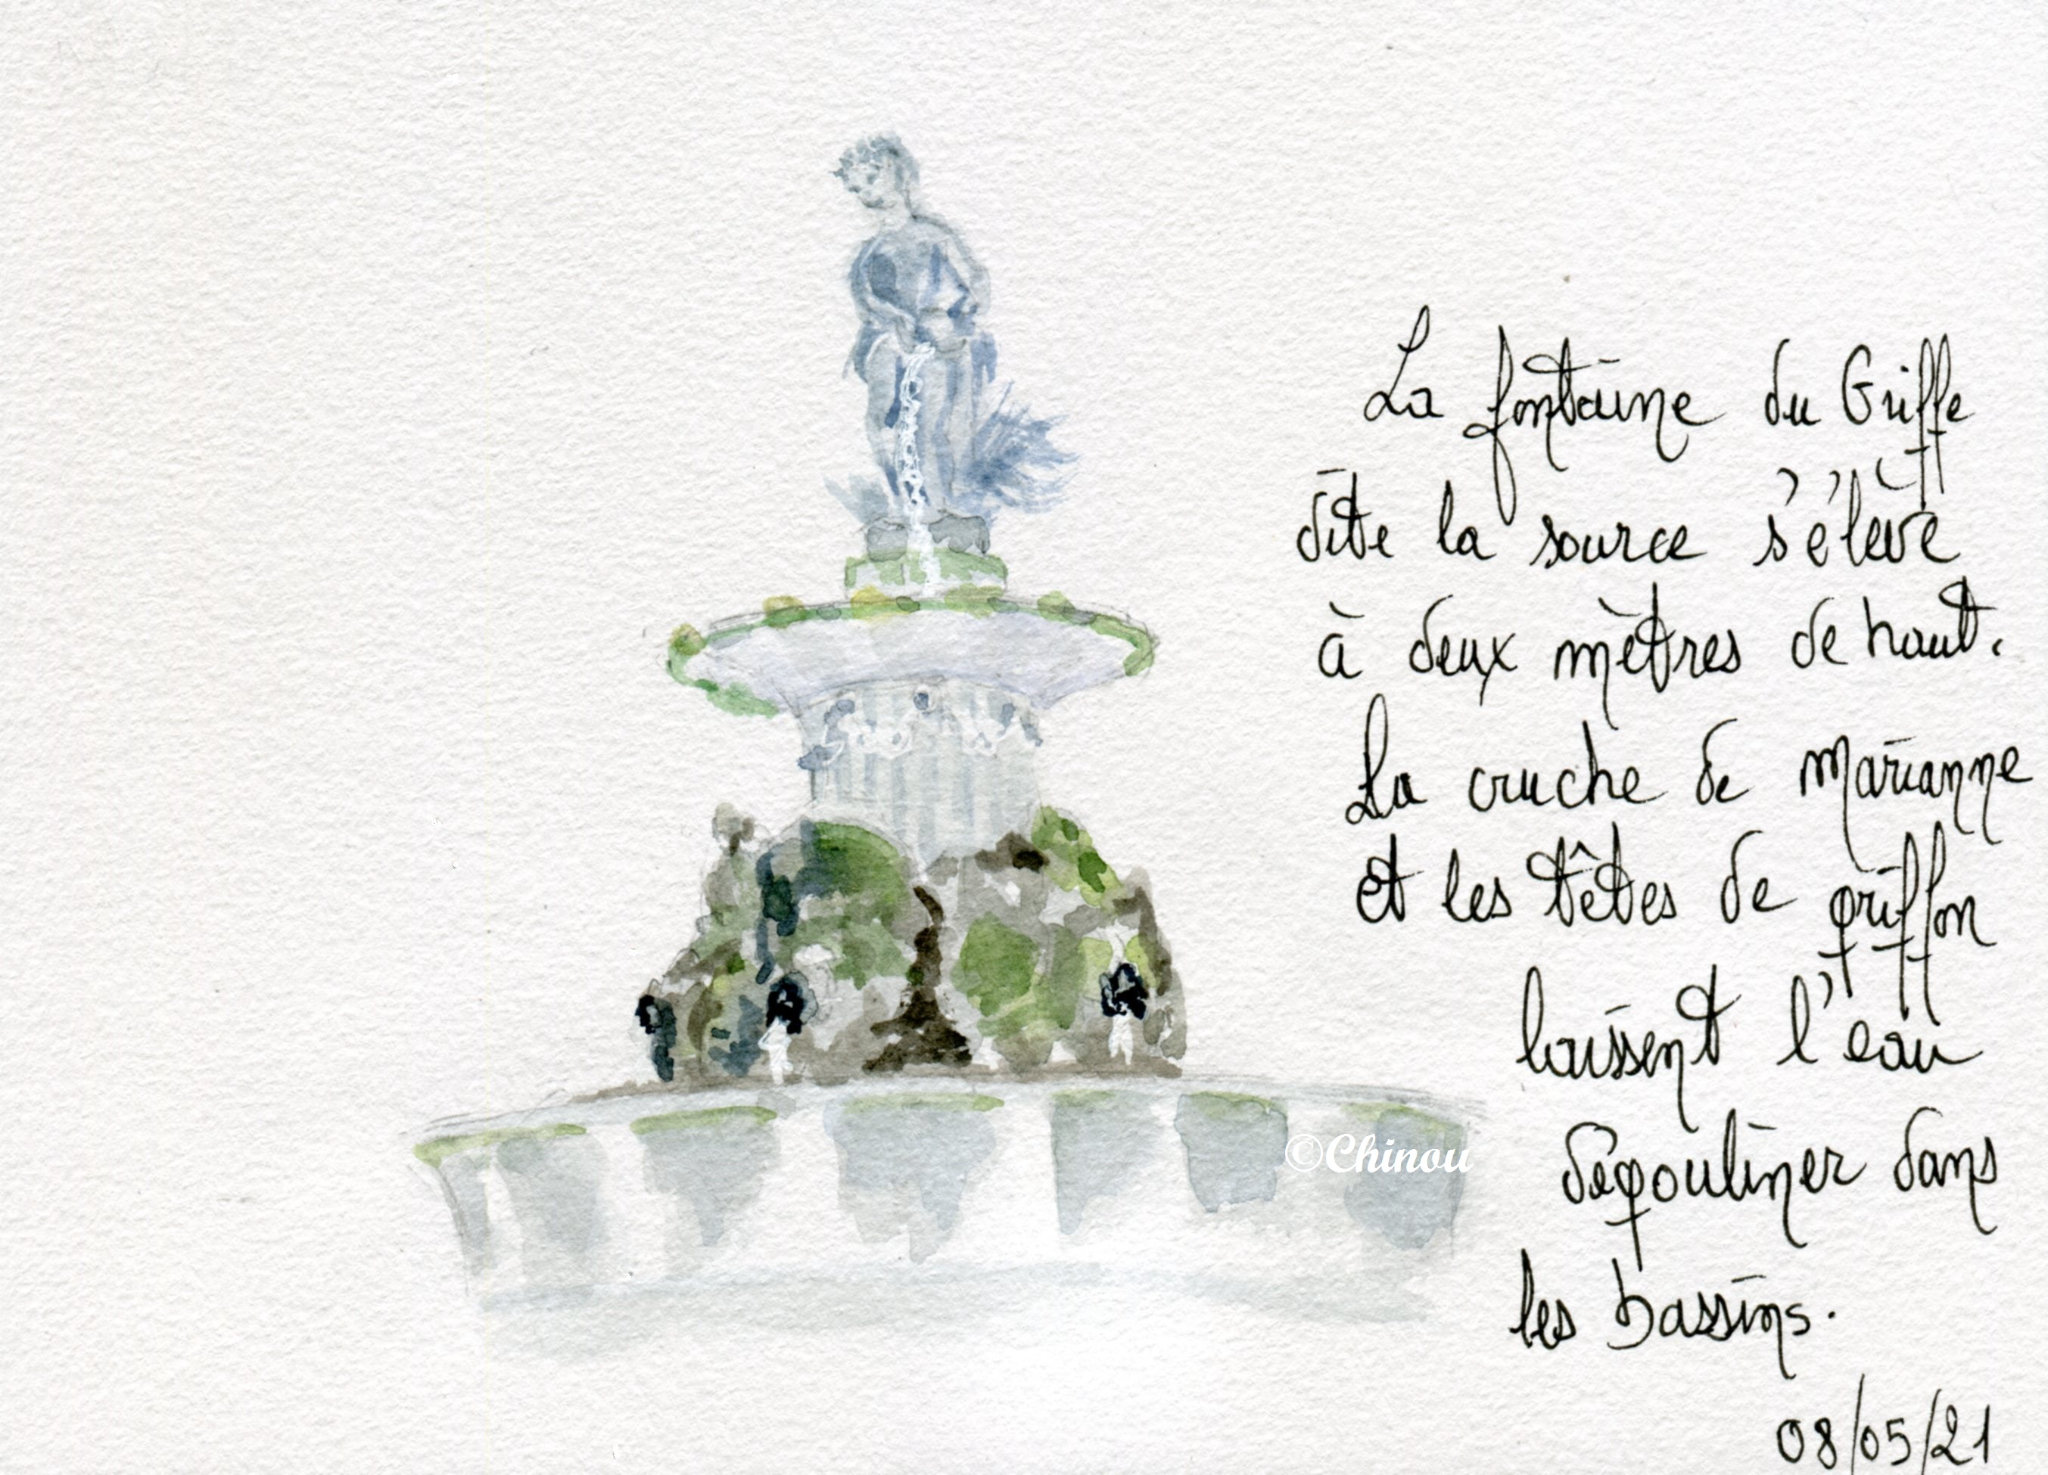 La fontaine du Griffe
dite la source s'élève
à deux mètres de haut.
La cruche de Marianne
et les têtes de griffon
laissent l'eau
dégouliner dans
les bassins.
08/05/21
©Chinou